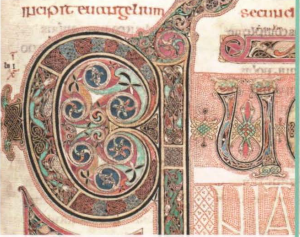 incipit euangelium secund
Qu
NIA